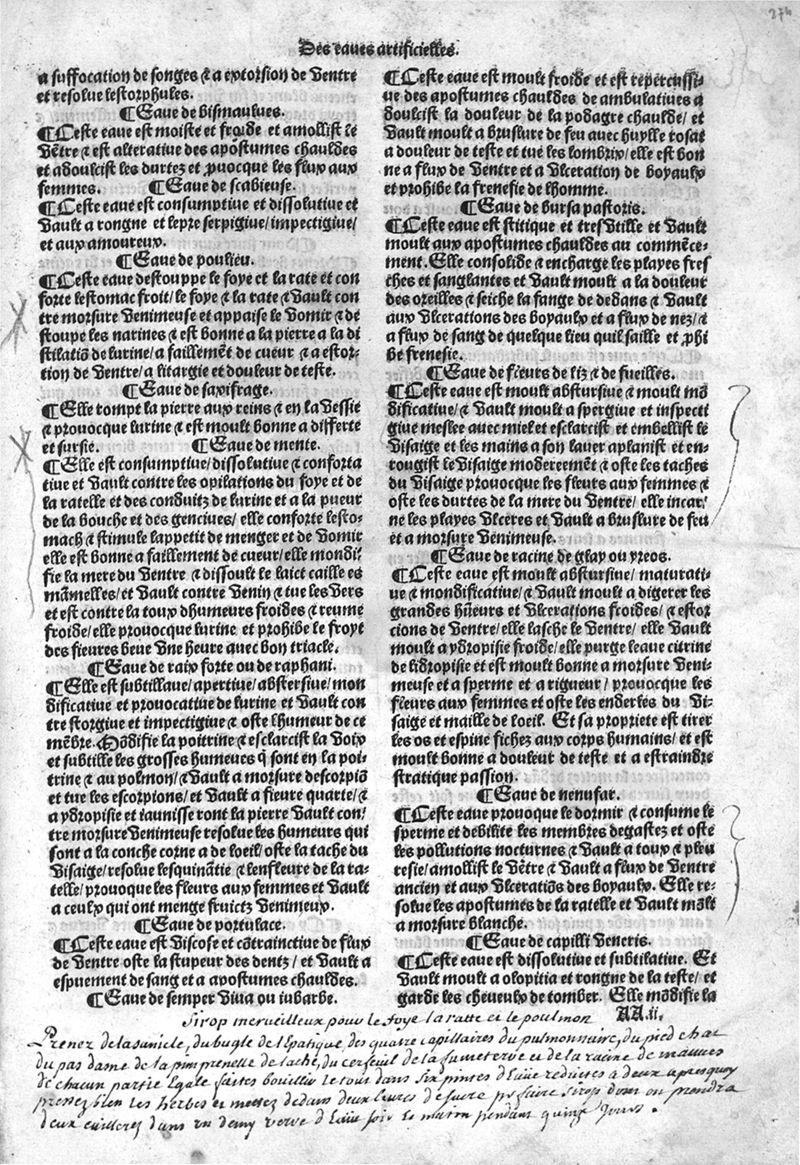 274
Des eaues artificielles.
a suffocation de songes & a extorsion de ventre
et resolue lestorphules.
¶ Eaue de bismaulues.
¶ Ceste eaue est moiste et froide et amollist le
vẽtre & est alterative des apostumes chauldes
et adoulcist les durtez et ꝓuocque les flux aux
femmes. ¶ Eaue de scabieuse.
¶ Ceste eaue est consumptiue et dissolutiue et
vault a rongne et lepre serpigiue/ impectigiue/
et aux amoureux.
¶ Eaue de poulieu.
¶ Ceste eaue destouppe le foye et la rate et con
forte lestomac froit/ le foye & la rate & vault con
tre morsure venimeuse et appaise le vomir & de
stoupe les narines & est bonne a la pierre a la di
stilatiõ de lurine/ a faillemẽt de cueur & a estor-
tion de ventre/ a litargie et douleur de teste.
¶ Eaue de saxifrage.
¶ Elle rompt la pierre aux reins & en la vessie
& prouocque lurine & est moult bonne a differte
et sursie. ¶ Eaue de mente.
¶ Elle est consumptiue/ dissolutiue & conforta
tiue et vault contre les opilations du foye et de
la ratelle et des conduitz de lurine et a la pueur
de la bouche et des genciues/ elle conforte lesto-
mach & stimule lappetit de menger et de vomir
elle est bonne a faillement de cueur/ elle mondi-
fie la mere du ventre & dissoult le laict caille es
mãmelles/ et vault contre venin & tue les vers
et est contre la toux dhumeurs froides & reume
froide/ elle prouocque lurine et prohibe le froyt
des fieures beue vne heure auec bon triacle.
¶ Eaue de raix forte ou de raphani.
¶ Elle est subtillaue/ apertiue/ abstersiue/ mon
dificatiue et prouocatiue de lurine et vault con
tre storgiue et impectigiue & oste lhumeur de ce
mẽbre. Mõdifie la poitrine & esclarcist la voix
et subtille les grosses humeurs q̃ sont en la poi-
trine & au polmon/ & vault a morsure descorpiõ
et tue les escorpions/ et vault a fieure quarte/ &
a ydropisie et iaunisse ront la pierre vault con/
tre morsure venimeuse resolue les humeurs qui
sont a la conche corne a de loeil/ oste la tache du
visaige/ resolue lesquinãtie & lenfleure de la ra-
telle/ prouoque les fleurs aux femmes et vault
a ceulx qui ont menge fruictz venimeux.
¶ Eaue de portulace.
¶ Ceste eaue est viscose et cõtrainctiue de flux
de ventre oste la stupeur des dentz/ et vault a
espuement de sang et a apostumes chauldes.
¶ Eaue de semper viua ou iubarbe.
¶ Ceste eaue est moult froide et est repercussi-
ue des apostumes chauldes de ambulatiues a
doulcist la douleur de la podagre chaulde/ et
vault moult a bruslure de feu auec huylle rosat
a douleur de teste et tue les lombrix/ elle est bon
ne a flux de ventre et a vlceration de boyaulx
et prohibe la frenesie de lhomme.
¶ Eaue de bursa pastoris.
¶ Ceste eaue est stitique et tresvtille et vault
moult aux apostumes chauldes au commẽce-
ment. Elle consolide & encharge les playes fres
ches et sanglantes et vault moult a la douleur
des oreilles & seiche la fange de dedans & vault
aux vlcerations des boyaulx et a flux de nez/ &
a flux de sang de quelque lieu quil saille et ꝓhi
be frenesie.
¶ Eaue de fleurs de liz & de fueilles.
¶ Ceste eaue est moult abstursiue & moult mõ
dificatiue/ & vault moult a spergiue et inspecti
giue meslee auec miel et esclarcist et embellist le
visaige et les mains a son lauer aplanist et en-
rougist le visaige moderemẽt & oste les taches
du visaige prouocque les fleurs aux femmes &
oste les durtes de la mere du ventre/ elle incar/
ne les playes vlceres et vault a bruslure de feu
et a morsure venimeuse.
¶ Eaue de racine de glay ou yreos.
¶ Ceste eaue est moult abstursiue/ maturati-
ue & mondificatiue/ & vault moult a digerer les
grandes hũeurs et vlcerations froides/ & estor
cions de ventre/ elle lasche le ventre/ elle vault
moult a ydropisie froide/ elle purge leaue citrine
de lidropisie et est moult bonne a morsure veni-
meuse et a sperme et a rigueur/ prouocque les
fleurs aux femmes et oste les enderles du vi-
saige et maille de loeil. Et sa propriete est tirer
les os et espine fichez aux corps humains/ et est
moult bonne a douleur de teste et a estraindre
stratique passion.
¶ Eaue de nenufar.
¶ Ceste eaue prouoque le dormir & consume le
sperme et debilite les membres degastez et oste
les pollutions nocturnes & vault a toux & pleu
resie/ amollist le vẽtre & vault a flux de ventre
ancien et aux vlceratiõs des boyaulx. Elle re-
solue les apostumes de la ratelle et vault mõlt
a morsure blanche.
¶ Eaue de capilli veneris.
¶ Ceste eaue est dissolutiue et subtilatiue. Et
vault moult a olopitia et rongne de la teste/ et
garde les cheueulx de tomber. Elle mõdifie la
AA.ii.
Sirop merueilleux pour le foye la ratte et le poulmon
Prenez de la sanicle, du bugle de l'Epatique, des quatre capillaires du pulmonnaire, du pied chat
du pas dame de la pimprenelle de lache, du cerfeuil de la fumeterre et de la racine de mauues
de chacun partie Egale faites bouillir le tout dans six pintes d'Eaüe reduites a deux apresquoy
pressez bien les herbes et mettez dedans deux liures de sucre pr faire sirop dont on prendra
deux cuillerez dans un demy verre d'Eaüe soir et matin pendant quinze Jours.